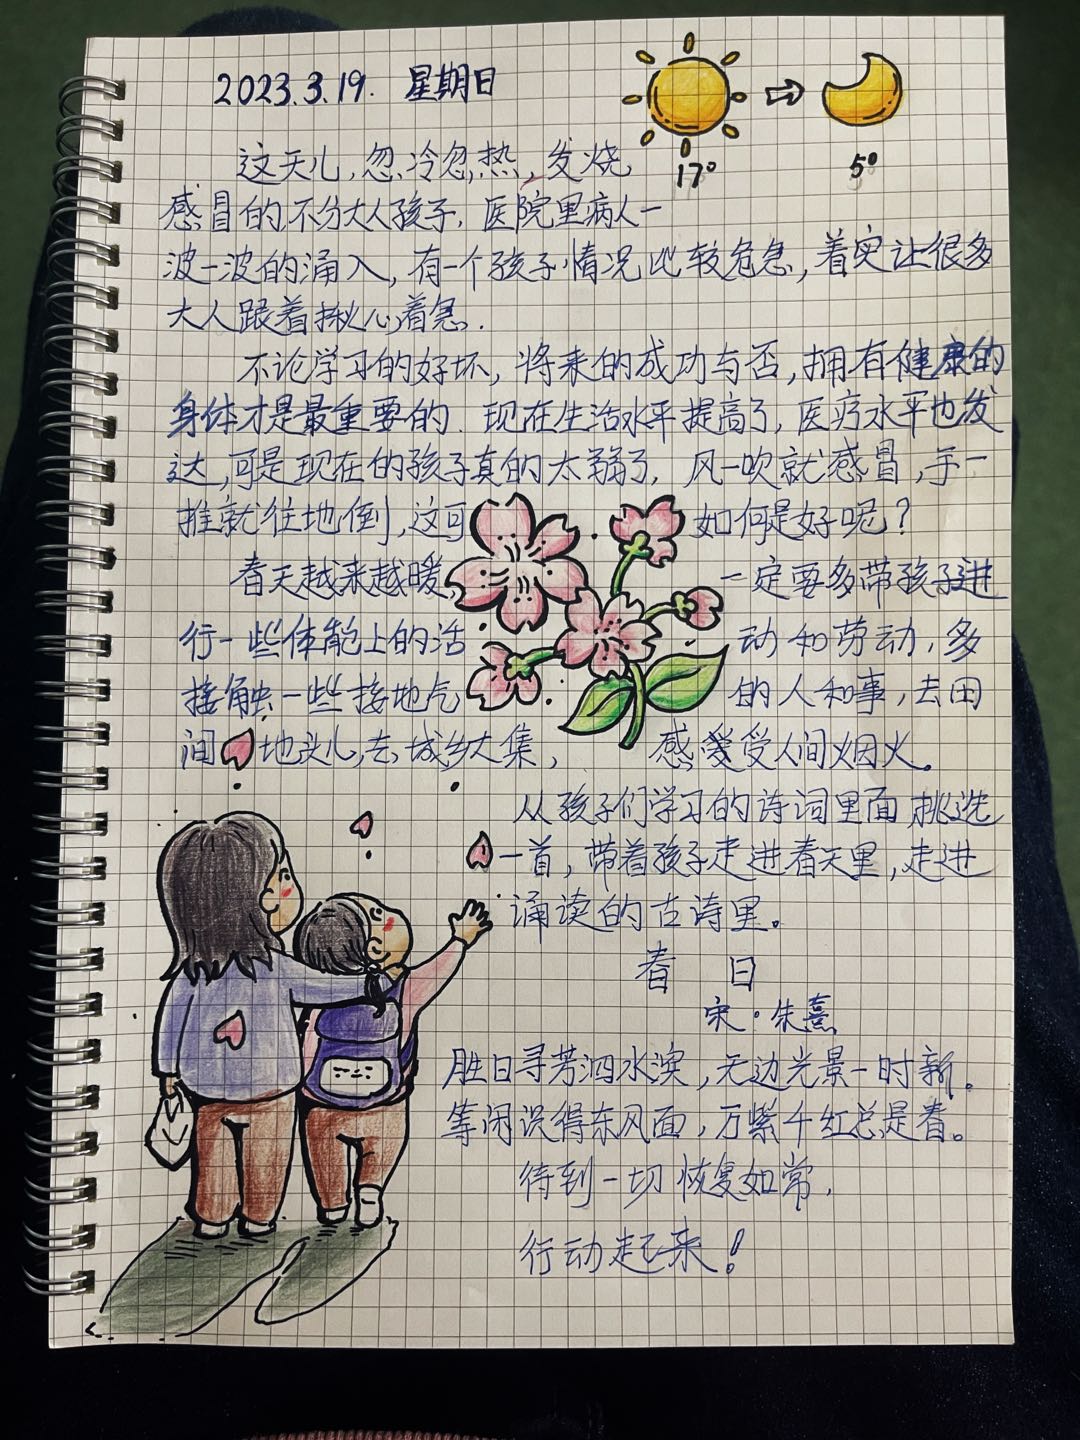 2023.3.19. 星期日
17° 5°
这天儿,忽冷忽热,发烧
感冒的不分大人孩子,医院里病人一
波一波的涌入,有一个孩子情况比较危急,着实让很多
大人跟着揪心着急.
不论学习的好坏,将来的成功与否,拥有健康的
身体才是最重要的.现在生活水平提高了,医疗水平也发
达,可是现在的孩子真的太弱了,风一吹就感冒,手一
推就往地倒,这可如何是好呢?
春天越来越暖一定要多带孩子进
行一些体能上的活动和劳动,多
接触一些接地气的人和事,去田
间地头儿,去城乡大集,感爱受人间烟火。
从孩子们学习的诗词里面挑选
一首,带着孩子走进春天里,走进
诵读的古诗里。
春 日
宋·朱熹
胜日寻芳泗水滨,无边光景一时新。
等闲识得东风面,万紫千红总是春。
待到一切恢复如常,
行动起来!